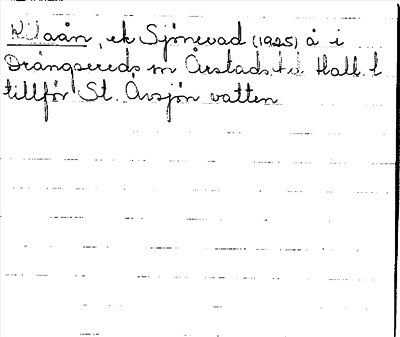 Kilaån, ek Sjönevad (1925) å i
Drängsereds sn Årstads hd Hall. l
tillför St. Åvsjön vatten